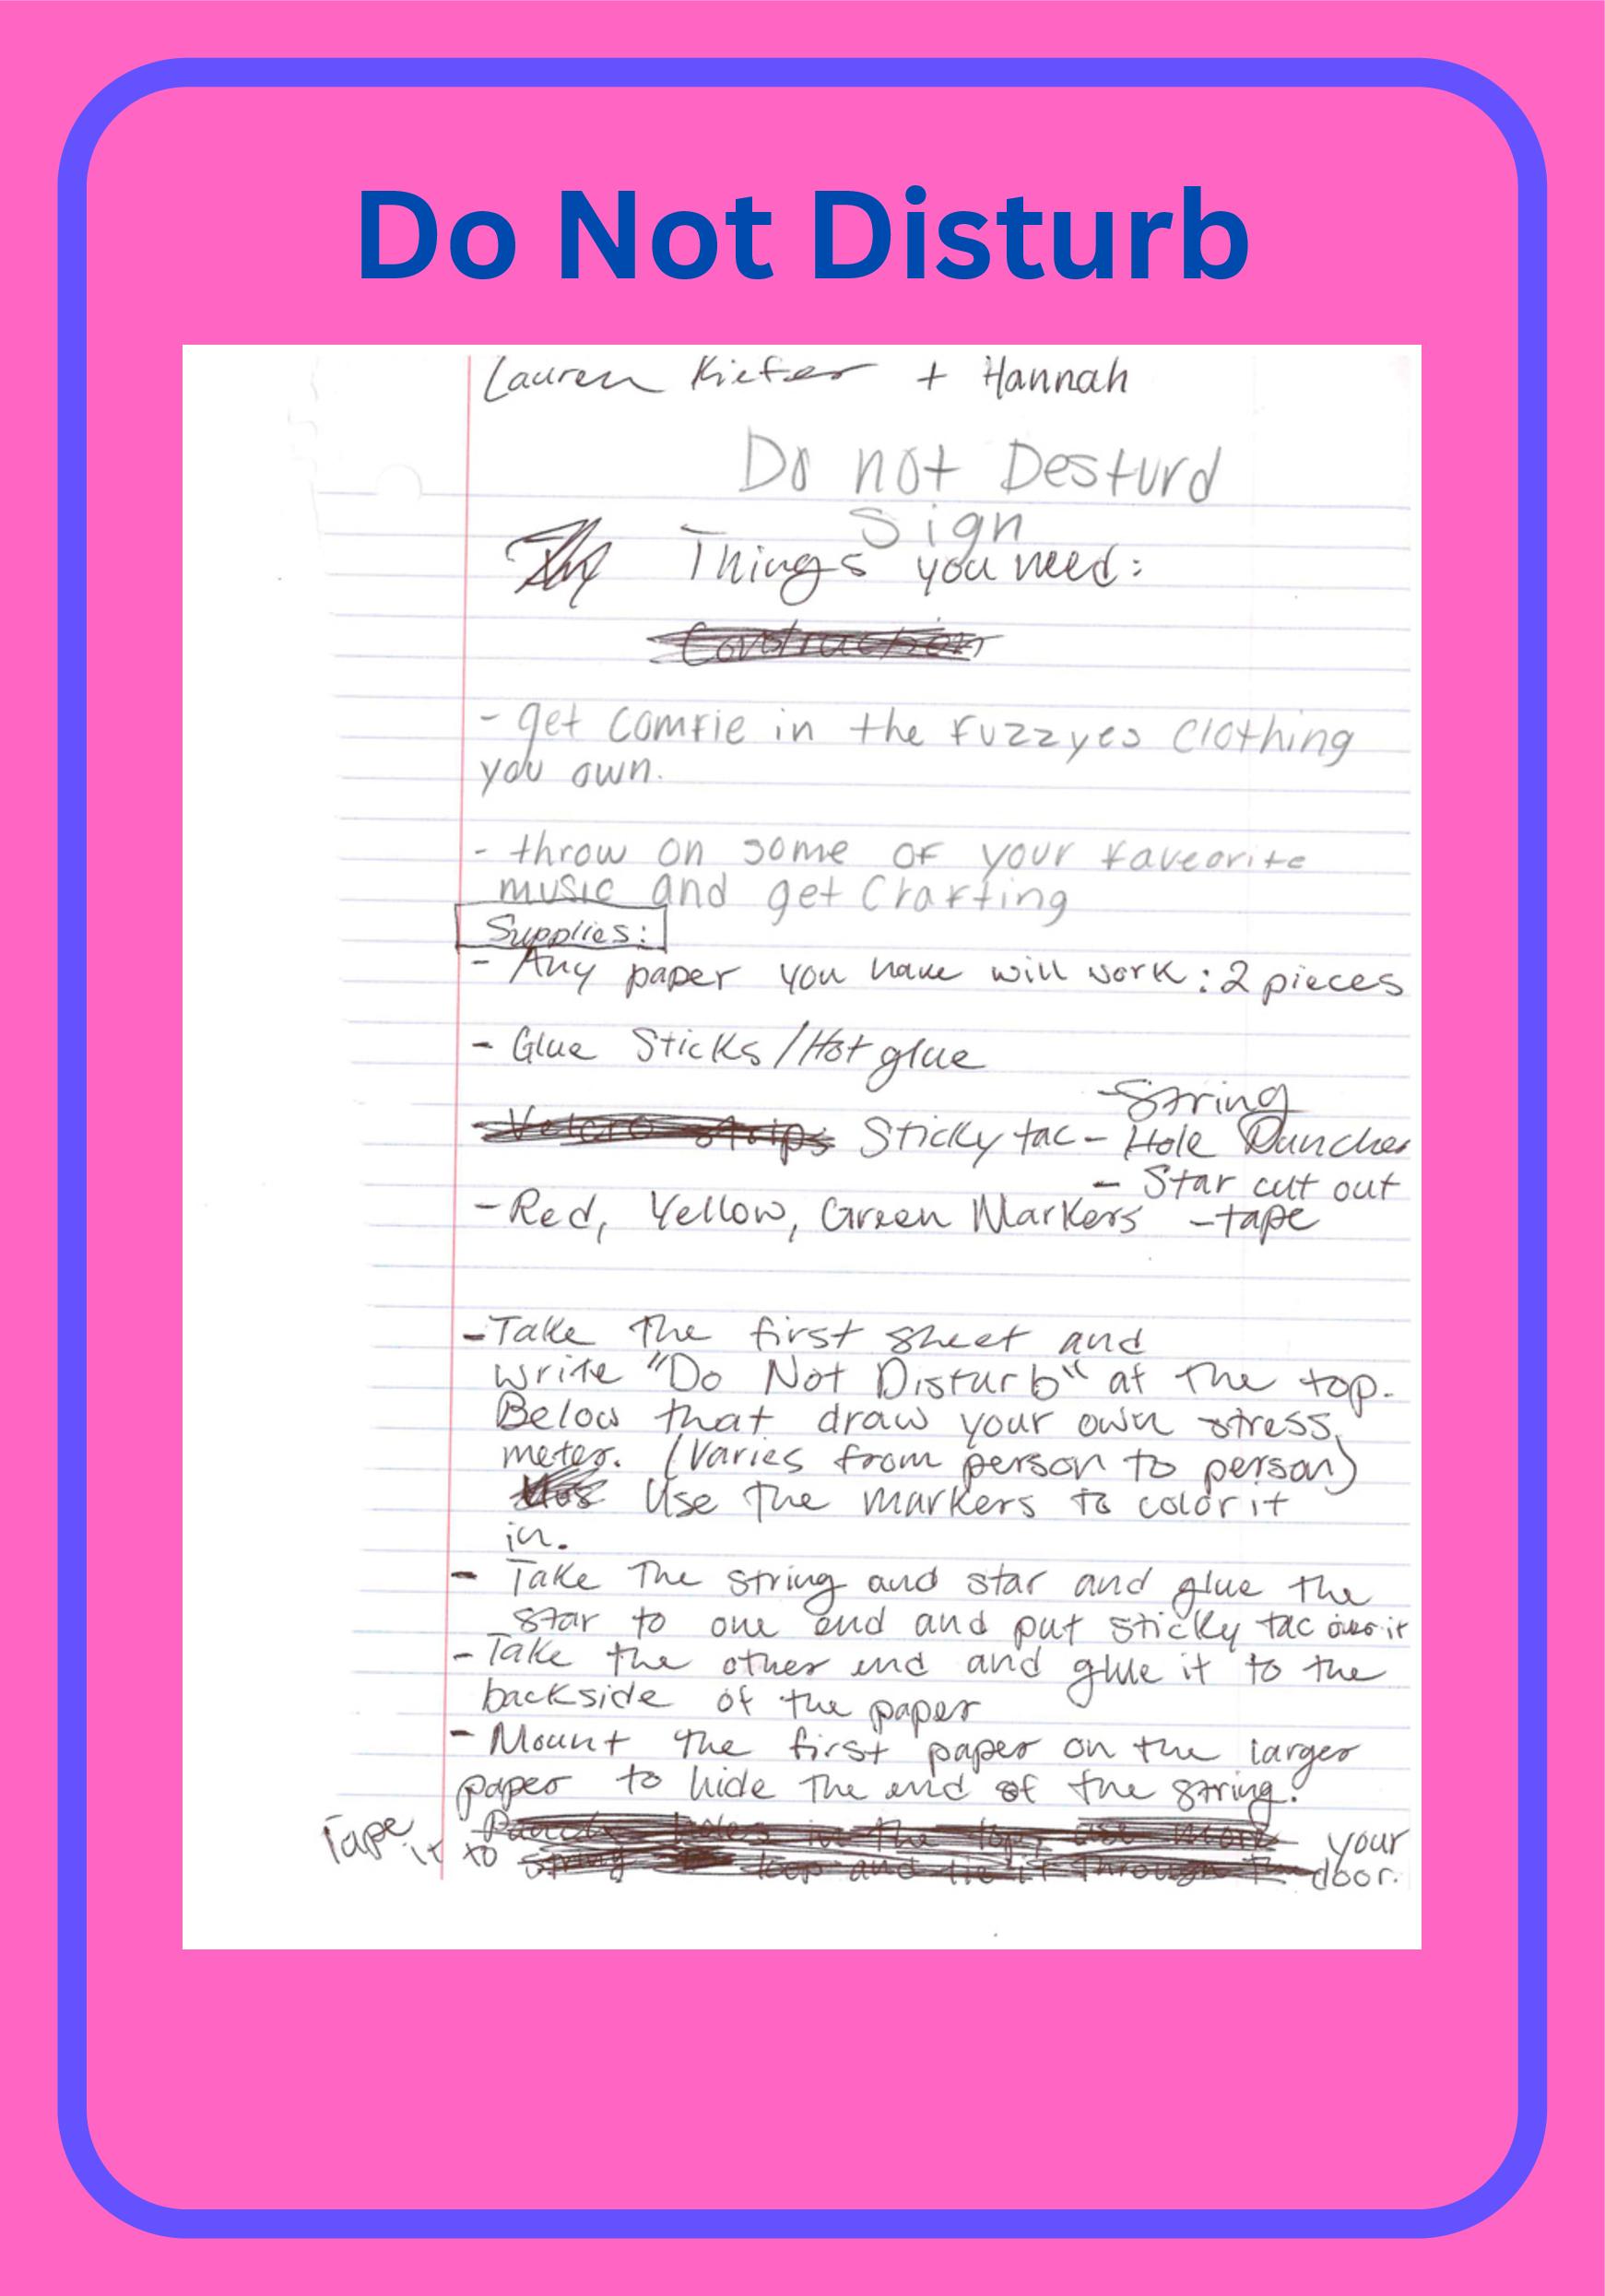 Do Not Disturb
Lauren Kiefer + Hannah
Do not Desturd
Sign
Things you need:
- get Comfie in the Fuzzyes Clothing
you own.
- throw on some of your faveorite
music and get Crafting
Supplies:
- Any paper you have will work: 2 pieces
- Glue Sticks/Hot glue
- String
Velcro strips Sticky tac - Hole Puncher
- Star cut out
- Red, Yellow, Green Markers - tape
- Take the first sheet and
write "Do Not Disturb" at the top.
Below that draw your own stress
meter. (Varies from person to person)
Use the markers to color it
in.
- Take the string and star and glue the
star to one end and put sticky tac over it
- Take the other end and glue it to the
backside of the paper
- Mount the first paper on the larger
paper to hide the end of the string.
Tape it to your door.